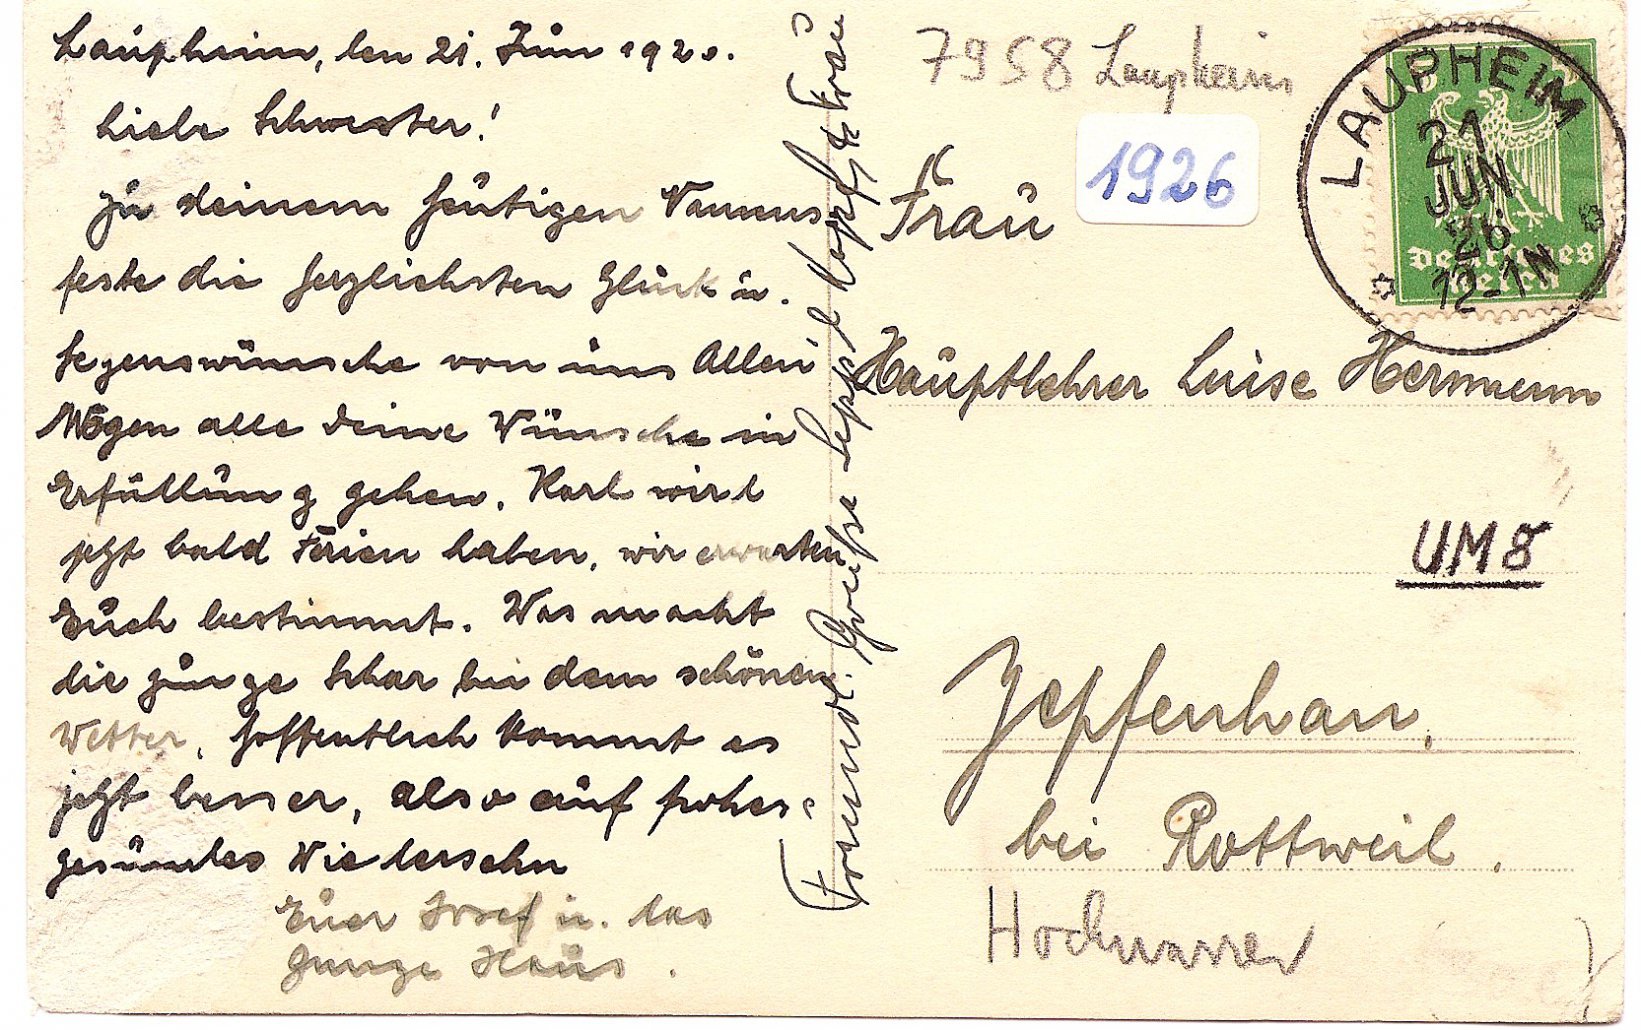 Laupheim, den 21. Jūn 1920.
Liebe Schwester!
zu deinem heutigen Namens
feste die herzlichsten Glück u.
Segenswünsche von uns Allen!
Mögen alle deine Wünsche in
Erfüllung gehen. Karl wird
jetzt bald Ferien haben, wir erwarten
Euch bestimmt. Was macht
die junge Schar bei dem schönen
Wetter, hoffentlich kommt es
jetzt besser, also auf frohes
gesundes Wiedersehn
Euer Josef u. das
ganze Haus.
Freundl. Grüße Seppl Kopf & Frau
7958 Laupheim
1926
LAUPHEIM
21
JUN
26
12-1N
Deutsches
Reich
Frau
Hauptlehrer Luise Hermann
UM8
Zepfenhan,
bei Rottweil.
Hochwasser